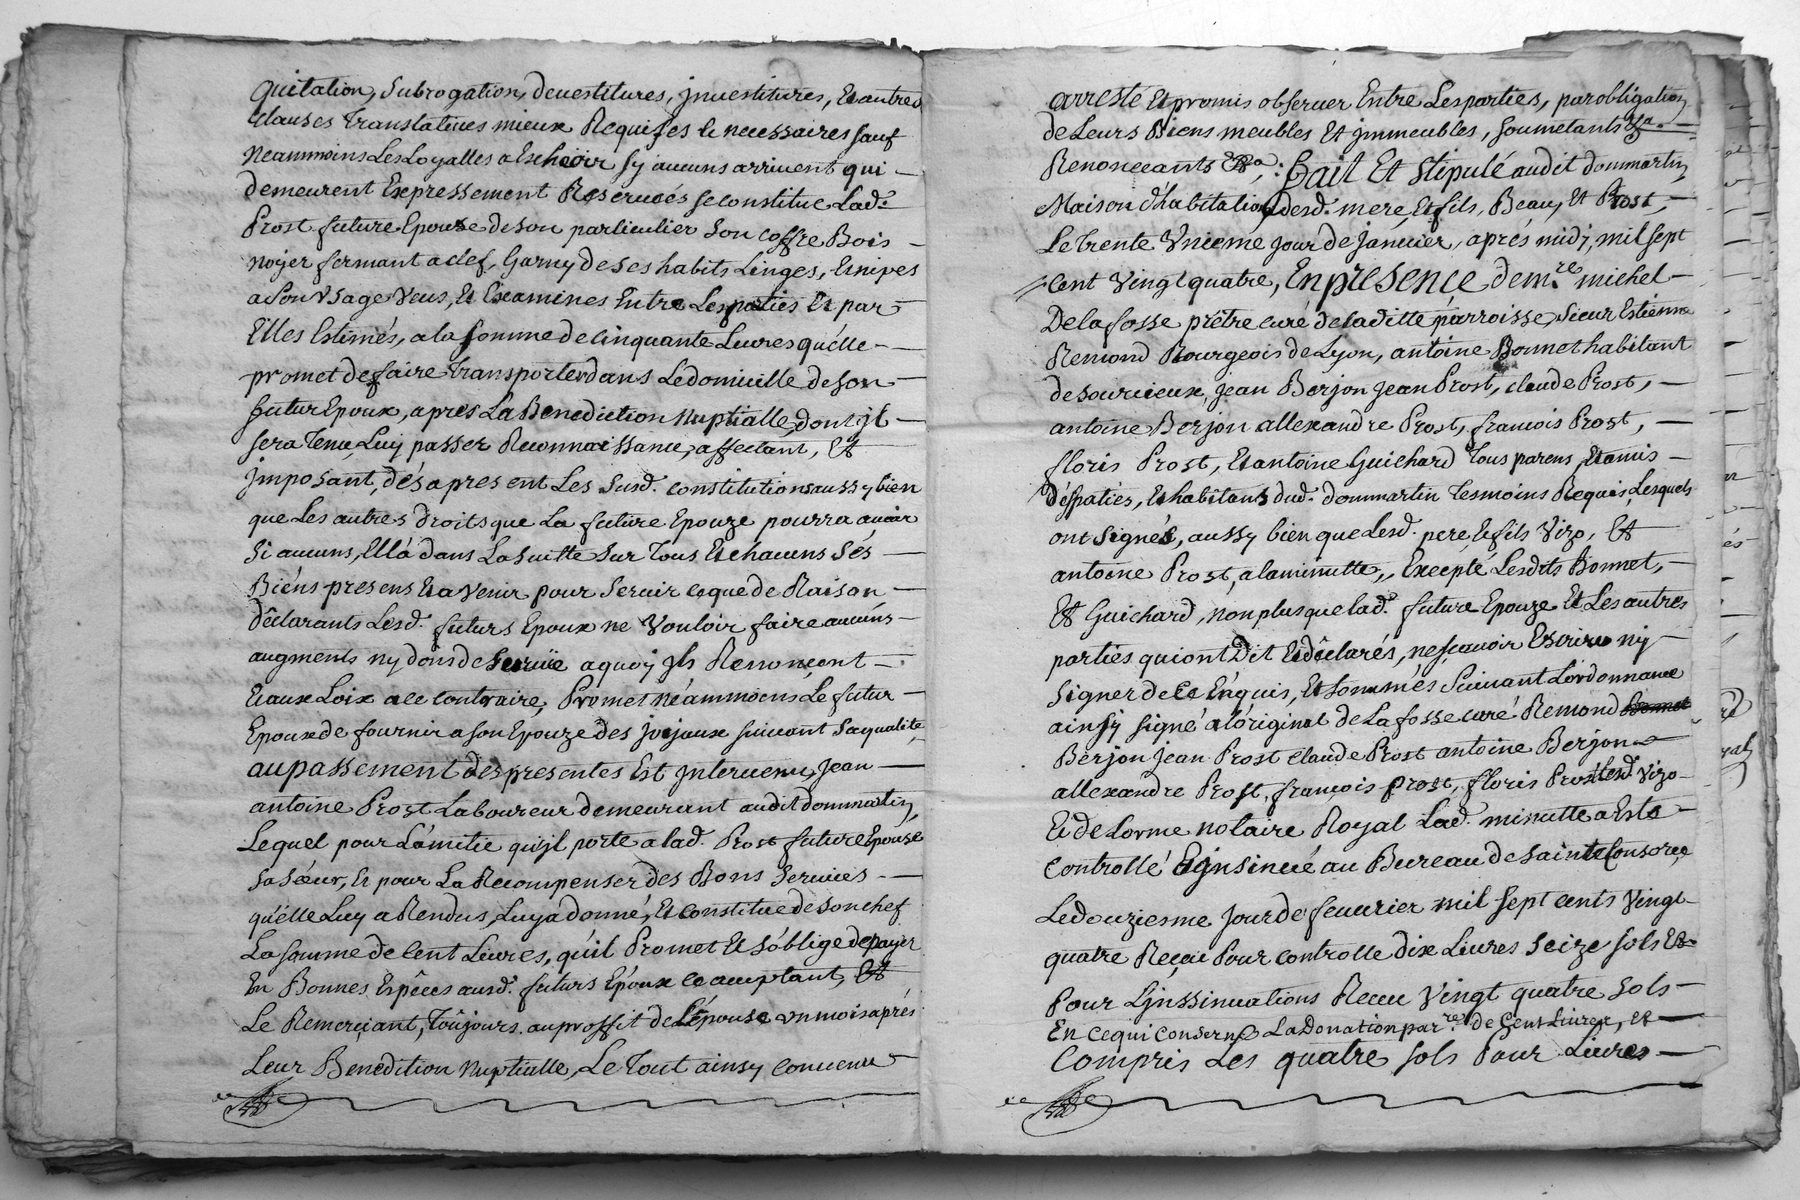 quitation, subrogation, devestitures, jnvestitures, Et autres
clauses Translatives mieux Requises le necessaires sauf
Neammoins Les Loyalles a Escheoir sy aucuns arrivent qui —
demeurent Expressement Reservées se constitue Lad.e
Prost future Epouze de son particulier Son coffre Bois —
noyer fermant a clef, Garny de ses habits Linges, Et nipes
a Son Usage Veus, Et Examines Entre Les parties Et par —
Elles Estimés, a la somme de Cinquante Livres qu'elle —
promet de faire Transporter dans Le domicille de son —
futur Epoux, apres La Benediction Nuptialle, dont jl —
sera Tenu, Luy passer Reconnaissance, affectant, Et
jmposant, dés apresent Les Susd. constitutions aussy bien
que Les autres droits que La future Epouze pourra avoir
si aucuns, Ella dans La suitte sur Tous Et chacuns sés —
Biéns presens Et a Venir pour Servir ce que de Raison —
déclarants Lesd. futurs Epoux ne Vouloir faire aucuns —
augments ny dons de Survie a quoy jls Renonçent —
Et aux Loix a ce Contraire, Promet néammoins Le futur —
Epoux de fournir a son Epouze des joyaux suivant Sa qualité,
au passement des presentes Est jntervenu, Jean —
antoine Prost Laboureur demeurant audit dommartin,
Lequel pour L'amitie qu'jl porte a lad. Prost future Epouse
Sa Sœur, Et pour La Recompenser des Bons Services —
qu'elle Luy a Rendus, Luy a donné, Et Constitue de son chef
La somme de Cent Livres, qu'il Promet Et s'oblige de payer
En Bonnes Espêces ausd. futurs Epoux Ce acceptant, Et
Le Remerçiant, Toûjours au proffit de L'épouse un mois aprés
Leur Benedition Nuptialle, Le Tout ainsy Convenu
arresté Et promis observer Entre Les parties, par obligation,
de Leurs Biens meubles Et jmmeubles, soumetants &a. —
Renonceants &a,: Fait Et Stipulé audit dommartin,
Maison d'habitation desd. mere, Et fils, Beau, Et Prost, —
Le Trente Unieme Jour de Janvier, aprés midj, mil sept
Cent Vingt quatre, En presence de m.re michel —
De la fosse prêtre curé de laditte parroisse, Sieur Estienne
Remond Bourgeois de Lyon, antoine Bonnet habitant
de Sourcieux, jean Berjon jean Prost, claude Prost, —
antoine Berjon allexandre Prost, francois Prost, —
floris Prost, Et antoine Guichard Tous parens, Et amis —
desparties, Et habitans dud. dommartin Tesmoins Requis, Lesquels
ont Signés, aussy bien que Lesd. pere, Et fils Vizo, Et
antoine Prost, a la minutte,, Excepté Lesdits Bonnet, —
Et Guichard, non plus que lad. future Epouze Et Les autres
parties qui ont Dit Et déclarés, ne sçavoir Escrire ny —
Signer de Ce Enquis, Et sommés Suivant Lordonnance
ainsy signé a l'original de La fosse curé Remond Bonnet
Berjon jean Prost Claude Prost antoine Berjon
allexandre Prost, françois Prost, floris Prost Lesd. Vizo —
Et de Lorme notaire Royal Lad. minutte a Esté —
Controllé Et jnsinué au Bureau de Sainte Consorce
Le douziesme Jour de feuvrier mil sept cents Vingt
quatre Reçeu Pour controlle dix Livres seize sols Et
Pour L'jnssinuations Receu Vingt quatre sols —
En ce qui Conserne La Donation par.re de Cent Livres, Et —
Compris Les quatre sols Pour Livres —